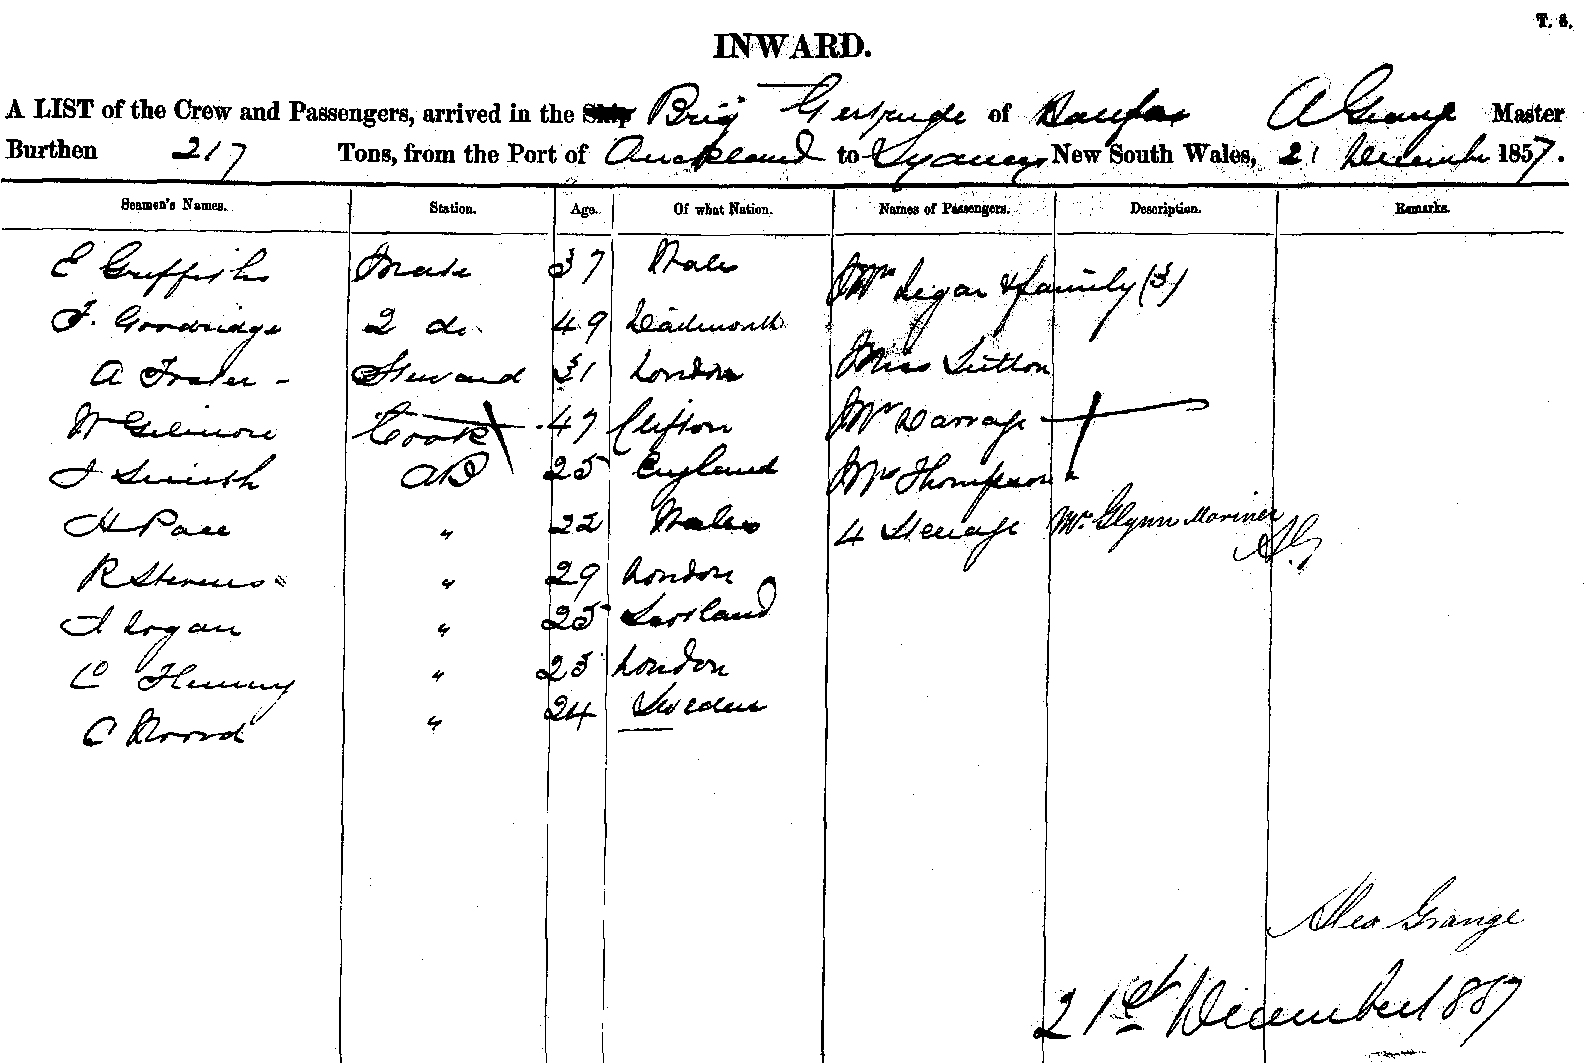 T. 5.
INWARD.
A LIST of the Crew and Passengers, arrived in the Ship Brig Gertrude of A Grange Master
Burthen 217 Tons, from the Port of Auckland to Sydney New South Wales, 21 December 1857.
Seamen's Names. Station. Age. Of what Nation. Names of Passengers. Description. Remarks.
E Griffiths Mate 37 Wales Mr Ligar & family (3)
F. Goodridge 2 do. 49
A Fraser - Steward 31 London Miss Sutton
W Gilmore Cook 47 Clifton Mr Darrage
J Smith AB 25 England Mrs Thompson
H Pace " 22 Wales 4 Steerage Mr. Glynn Mariner
AG
R Stevens " 29 London
J Logan " 25 Scotland
C " 25 London
C Noord " 24 Sweden
Alex Grange
21st December 1857